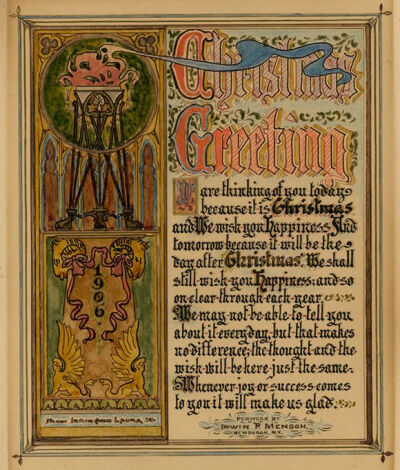 Christmas
Greeting
We are thinking of you today
because it is Christmas
and We wish you Happiness. And
tomorrow because it will be the
day after Christmas, We shall
still wish you Happiness; and so
on clear through each year.
We may not be able to tell you
about it every day, but that makes
no difference; the thought and the
wish will be here just the same.
Whenever joy or success comes
to you it will make us glad.
PENWORK BY
IRWIN P. MENSCH,
NEWBURGH, N.Y.
1906.
From Irwin and Laura